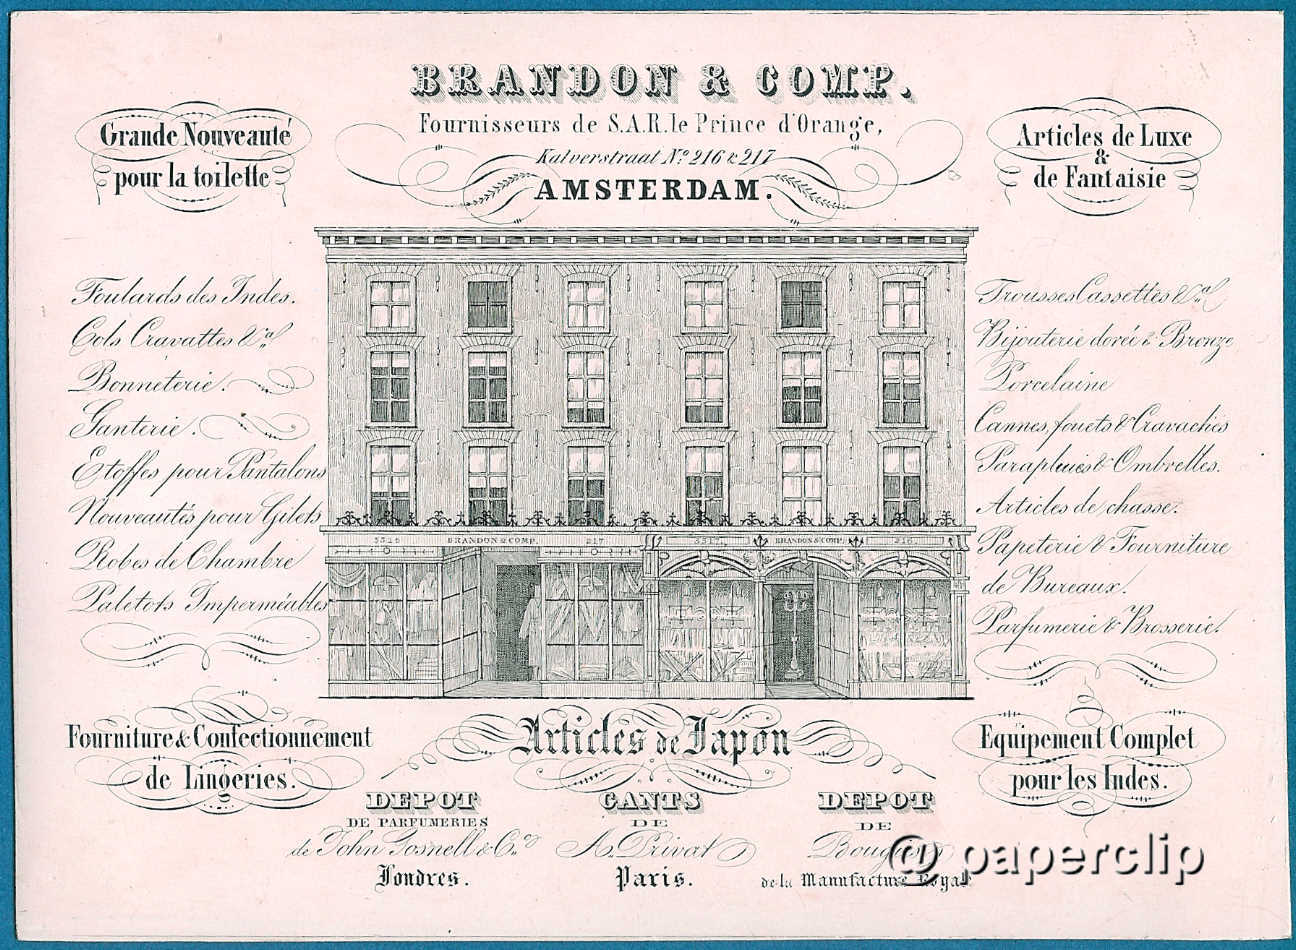 BRANDON & COMP.
Fournisseurs de S.A.R. le Prince d'Orange,
Kalverstraat No. 216 & 217
AMSTERDAM.
Grande Nouveauté
pour la toilette
Articles de Luxe
&
de Fantaisie
Foulards des Indes.
Cols Cravattes &a
Bonneterie.
Ganterie.
Etoffes pour Pantalons
Nouveautés pour Gilets
Robes de Chambre
Paletots Imperméables
Trousses Cassettes &a
Bijouterie dorée & Bronze
Porcelaine
Cannes, fouets & Cravaches
Parapluies & Ombrelles.
Articles de chasse.
Papeterie & Fourniture
de Bureaux.
Parfumerie & Brosserie.
BRANDON & COMP. 217.
BRANDON & COMP. 216.
Fourniture & Confectionnement
de Lingeries.
Articles de Japon
Equipement Complet
pour les Indes.
DEPOT
DE PARFUMERIES
de John Gosnell & Co.
Londres.
GANTS
DE
A. Privat
Paris.
DEPOT
DE
Bougies
de la Manufacture Royal
@ paperclip